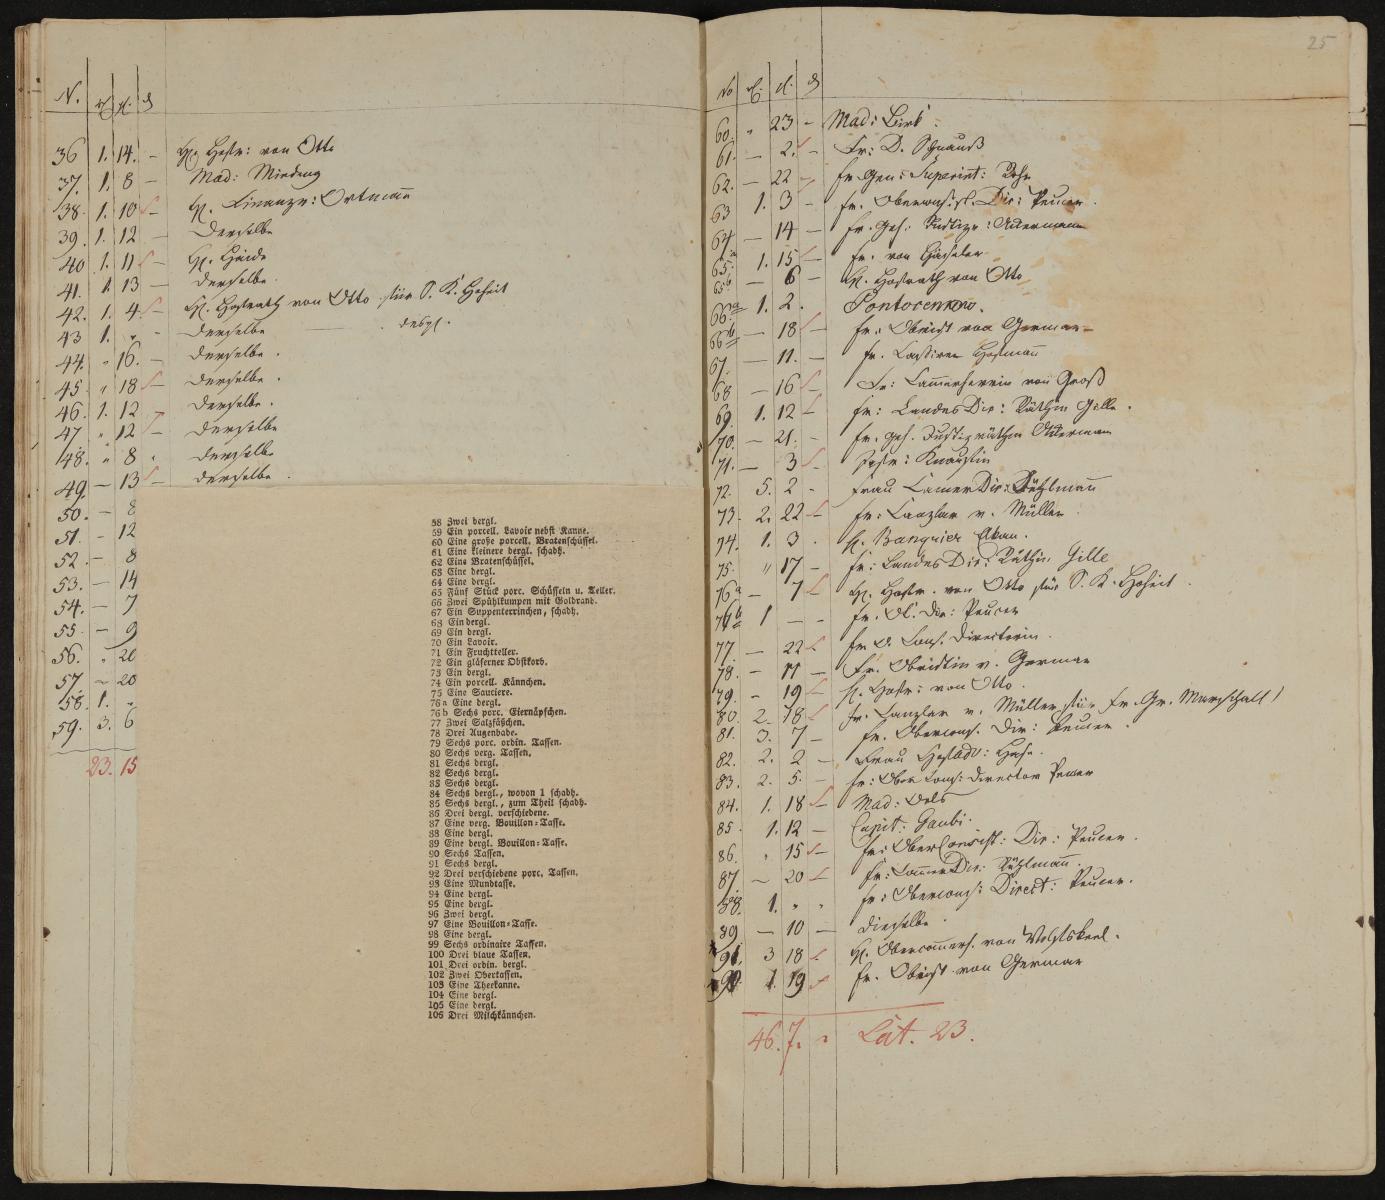 N. rℓ. gl. ₰
36 1. 14. – H. Hofr: von Otto
37. 1. 8 – Mad: Mirdeng
38. 1. 10 – H. Finanzr: Ortmann
39. 1. 12 – derselbe
40 1. 11 – H.
41. 1. 13 – derselbe.
42. 1. 4. – H. Hofrath von Otto für S. K. Hoheit
43 1. " " derselbe desgl.
44. " 16. – derselbe.
45. " 18 – derselbe.
46. 1. 12 derselbe.
47 " 12 – derselbe
48. " 8 " derselbe
49. – 13 – derselbe.
50. – 8
51. – 12
52. – 8
53. – 14
54. – 7
55. – 9
56. " 20
57 – 20
58. 1. "
59. 3. 6
23. 15
58 Zwei dergl.
59 Ein porcell. Lavoir nebst Kanne.
60 Eine große porcell. Bratenschüssel.
61 Eine kleinere dergl. schadh.
62 Eine Bratenschüssel.
63 Eine dergl.
64 Eine dergl.
65 Fünf Stück porc. Schüsseln u. Teller.
66 Zwei Spühlkumpen mit Goldrand.
67 Ein Suppenterrinchen, schadh.
68 Ein dergl.
69 Ein dergl.
70 Ein Lavoir.
71 Ein Fruchtteller.
72 Ein gläserner Obstkorb.
73 Ein dergl.
74 Ein porcell. Kännchen.
75 Eine Sauciere.
76a Eine dergl.
76b Sechs porc. Eiernäpfchen.
77 Zwei Salzfäßchen.
78 Drei Augenbade.
79 Sechs porc. ordin. Tassen.
80 Sechs verg. Tassen.
81 Sechs dergl.
82 Sechs dergl.
83 Sechs dergl.
84 Sechs dergl., wovon 1 schadh.
85 Sechs dergl., zum Theil schadh.
86 Drei dergl. verschiedene.
87 Eine verg. Bouillon=Tasse.
88 Eine dergl.
89 Eine dergl. Bouillon=Tasse.
90 Sechs Tassen.
91 Sechs dergl.
92 Drei verschiedene porc. Tassen.
93 Eine Mundtasse.
94 Eine dergl.
95 Eine dergl.
96 Zwei dergl.
97 Eine Bouillon=Tasse.
98 Eine dergl.
99 Sechs ordinaire Tassen.
100 Drei blaue Tassen.
101 Drei ordin. dergl.
102 Zwei Obertassen.
103 Eine Theekanne.
104 Eine dergl.
105 Eine dergl.
106 Drei Milchkännchen.
25
No rℓ. gl. ₰
60. " 23 – Mad: Kirk
61. – 2. – Fr: D. Schnauß
62. – 22 – Fr Gen: Superint: Röhr
63 1. 3 – Fr. Dir: Peucer.
64 – 14 – Fr. Geh. Justizr: Ackermann
65.a 1. 15 – Fr. von
65b – 6 – H. Hofrath von Otto
66a 1. 2. Pontocenkono.
66b – 18 – Fr. Obrist von Germar–
67. – 11. – Fr. Hofmann
68 – 16 – Fr: Kammerherrin von Groß
69. 1. 12 Fr: Landes Dir: Räthin Gille.
70. – 21. – Fr. Geh. Justizräthin Ackermann
71. – 3 –
72. 5. 2 – Frau Camer Dir:
73. 2. 22 Fr: Kanzler v. Müller
74. 1. 3 . H. Banquier Elkan.
75. " 17 – Fr: Landes Dir: Räthin Gille
76a – 7 H. Hofr. von Otto für S. K. Hoheit.
76b 1 – – Fr. Dir: Peucer
77 – 22 Fr Directorin.
78. – 11 – Fr. Obristin v. Germar
79. – 19 H. Hofr: von Otto.
80. 2. 18 Fr. Canzler v. Müller für Fr. Gr. Marschall!
81. 3. 7 – Fr. Dir: Peucer.
82. 2. 2 – Frau
83. 2. 5. – Fr: Ober Cons: Director Peucer
84. 1. 18 – Mad: Oels
85. 1. 12 – Capit: Gaubi.
86. " 15 – Fr: Ober Consist: Dir: Peucer.
87. – 20 Fr: Cammer Dir:
88. 1. " " Fr: Obercons: Direct: Peucer.
89 – 10 – dieselbe
91. 3 18 H. von Wolfskeel.
1. 19 Fr. Obrist von Germar
46. 7. " Lat. 23.